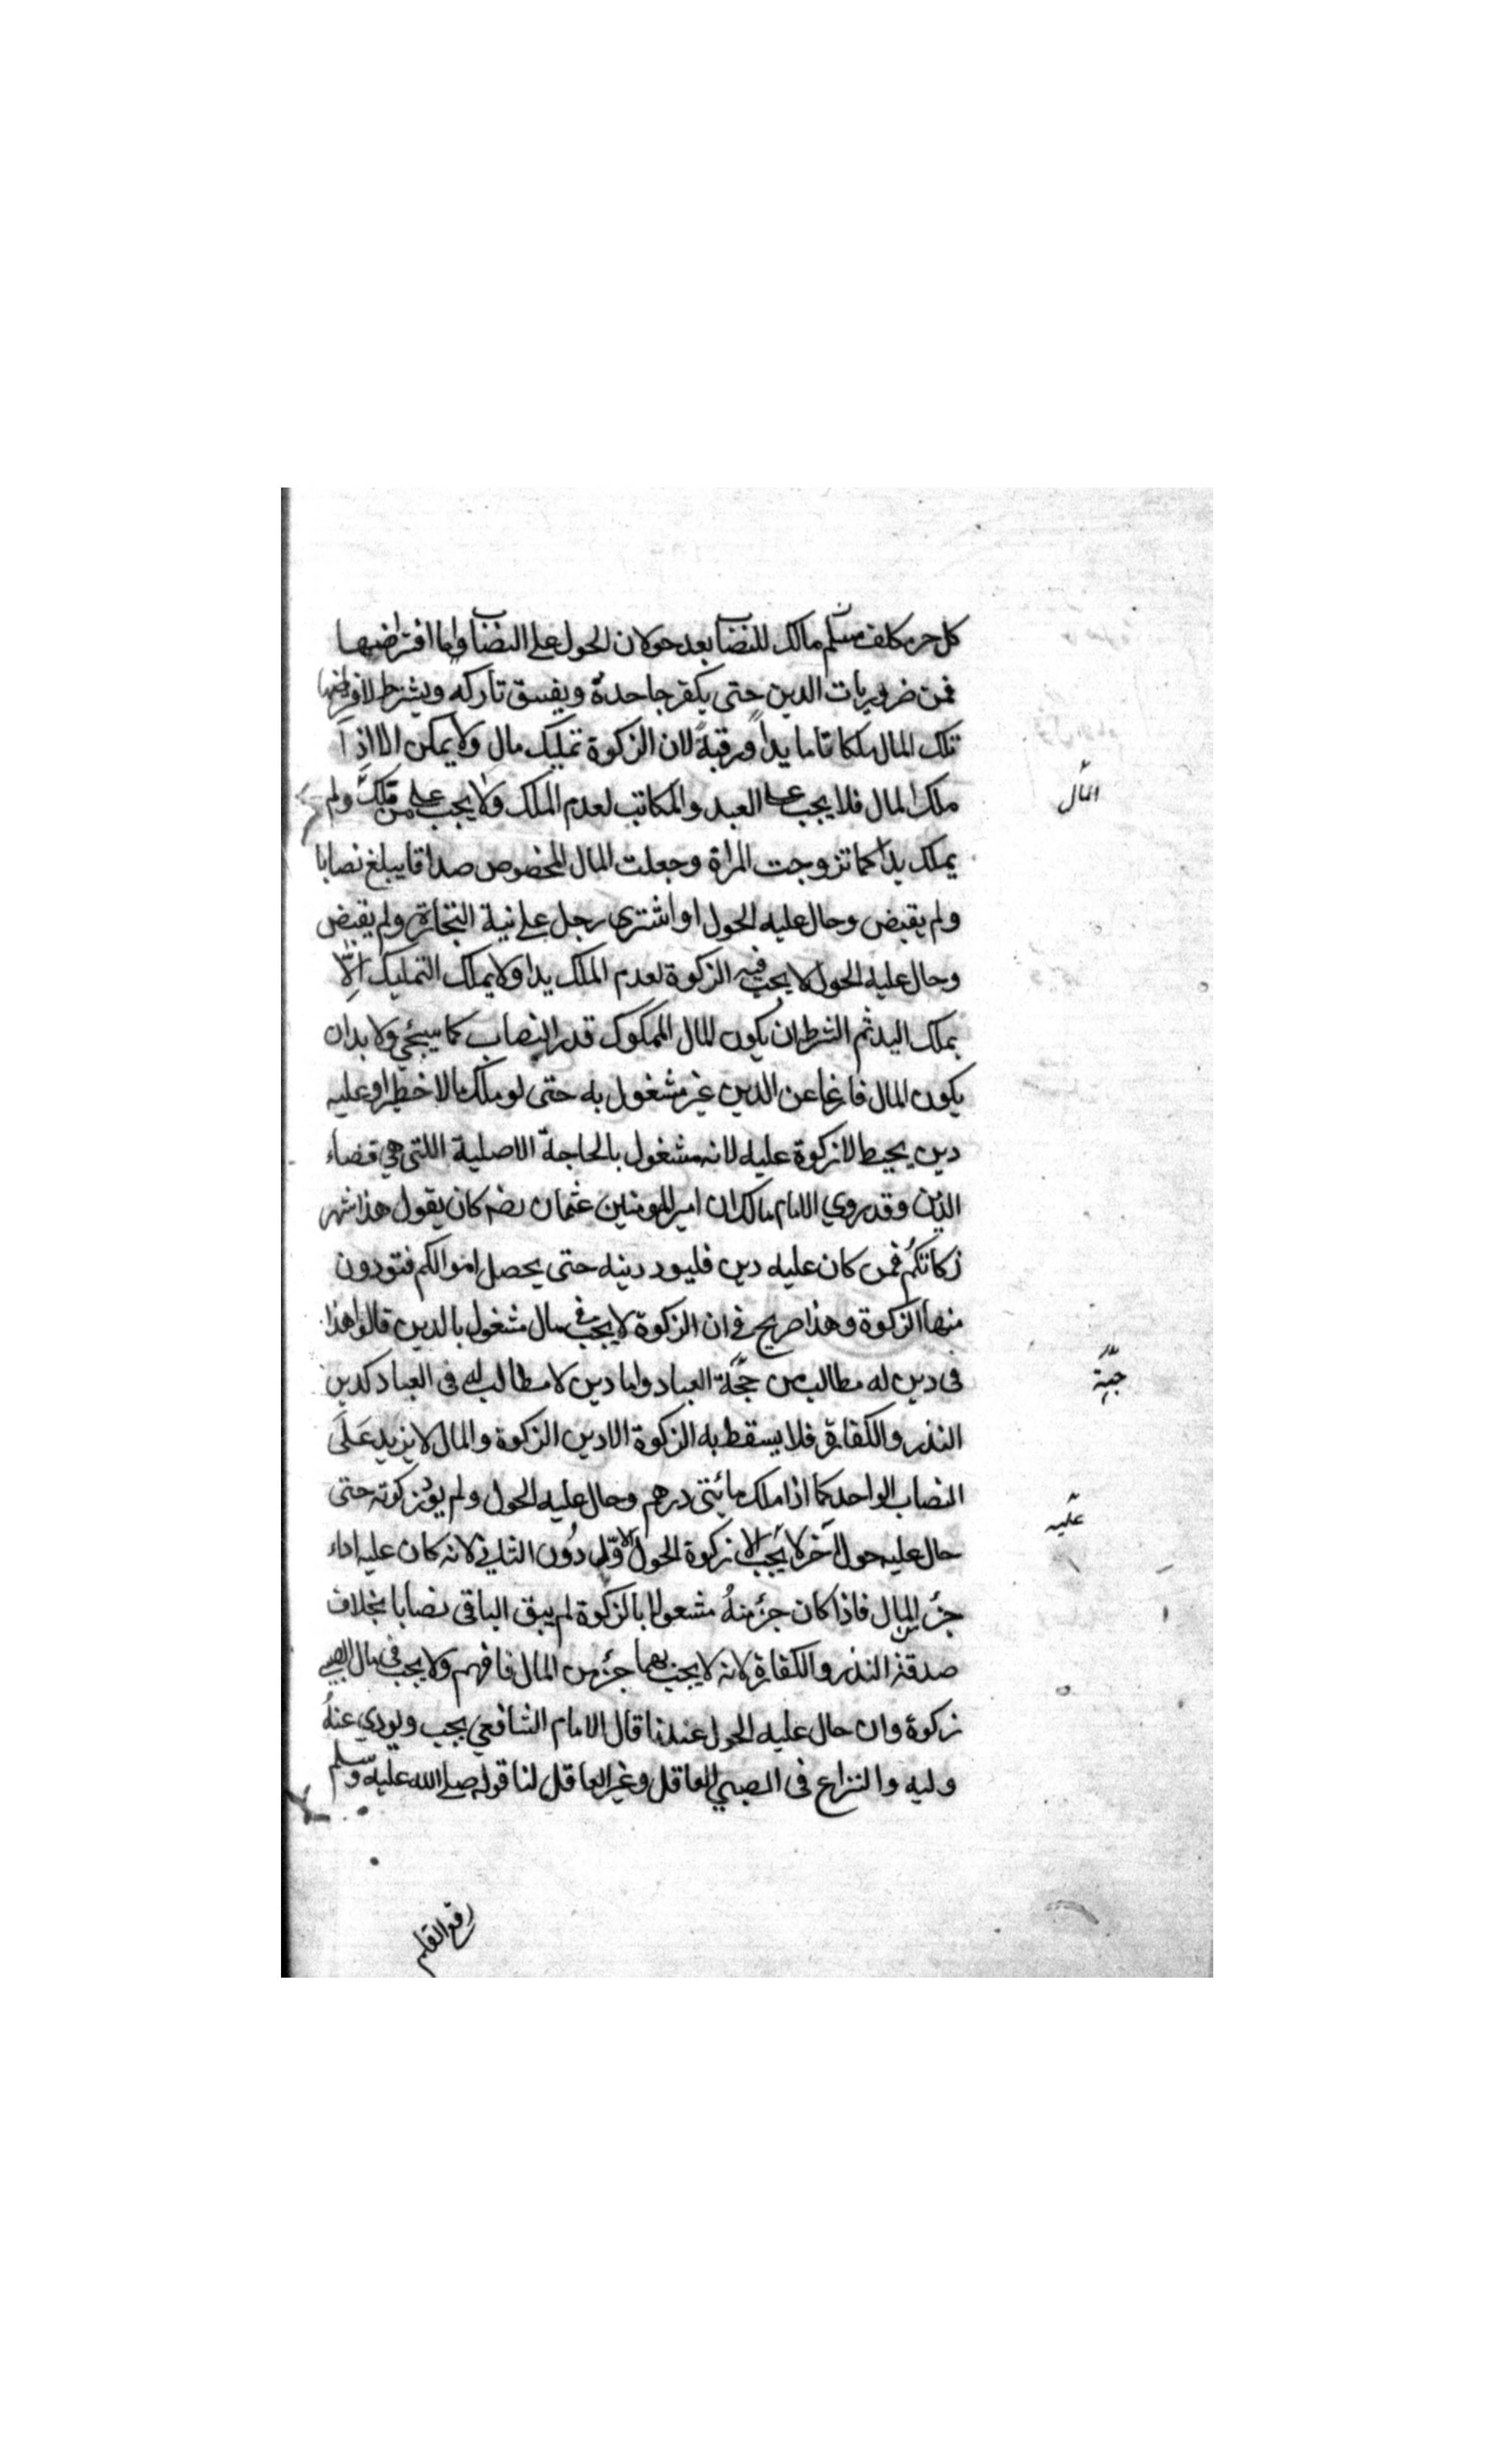 كل حر مكلف مسلم مالك للنصاب بعد حولان الحول على النصاب واما افتراضها
فمن ضروريات الدين حتى يكفر جاحده ويفسق تاركه ويشترط لافتراضها
تلك المال ملكا تاما يداً ورقبةً لان الزكوة تمليك مال ولا يمكن الا اذا
ملك المال فلا يجب على العبد والمكاتب لعدم الملك ولا يجب على من ملك ولم
يملك يدا كما تزوجت المراة وجعلت المال المخصوص صداقا يبلغ نصابا
ولم يقبض وحال عليه الحول او اشترى رجل على نية التجارة ولم يقبض
وحال عليه الحول لا يجب فيه الزكوة لعدم الملك يدا ولا يملك التمليك الّا
بملك اليد ثم الشرط ان يكون المال المملوك قدر النصاب كما سيجئي ولا بد ان
يكون المال فارغا عن الدين غير مشغول به حتى لو ملك مالا خطيرا وعليه
دين يحيط لا زكوة عليه لانه مشغول بالحاجة الاصلية اللتى هي قضاء
الدين وقد روي الامام مالك ان امير المومنين عثمان رضه كان يقول هذا شهر
زكاتكُم فمن كان عليه دين فليود دينه حتى يحصل اموالكم فتودون
منها الزكوة وهذا صريح في ان الزكوة لا يجب في مال مشغول بالدين قالوا هذا
فى دين له مطالب من حجّة العباد واما دين لا مطالب له فى العباد كدين
النذر والكفارة فلا يسقط به الزكوة الا دين الزكوة والمال لا يزيد عَلَى
النصاب الواحد كما اذا ملك مائتى درهم وحال عليه الحول ولم يود زكوته حتى
حال عليه حول آخر لا يجب الا زكوة الحول الاوّل دُون الثاني لانه كان عليه اداء
جزء من المال فاذا كان جزء منهُ مشغولا بالزكوة لم يبق الباقى نصابا بخلاف
صدقة النذر والكفارة لانه لا يجب بهما جزء من المال فافهم ولا يجب فى مال الصبي
زكوة وان حال عليه الحول عندنا قال الامام الشافعي يجب ويودي عنهُ
وليه والنزاع فى الصبي العاقل وغير العاقل لنا قوله صلى الله عليه وسلم
رفع القلم
المال
جهة
عليه